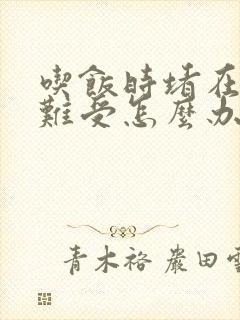 喫飯時堵在
難受怎麼办
青木裕 嚴田雪